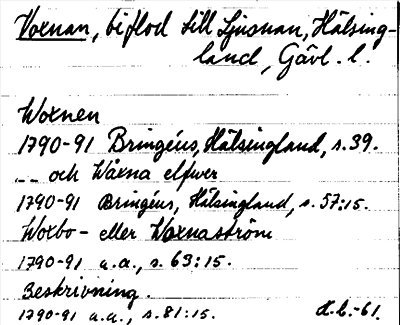 Voxnan, biflod till Ljusnan, Hälsing-
land, Gävl. l.
Woxnen
1790-91 Bringéus, Hälsingland, s. 39.
-- och Wåxna elfwer
1790-91 Bringéus, Hälsingland, s. 57:15.
Woxbo- eller Woxnaström
1790-91 a.a., s. 63:15.
Beskrivning.
1790-91 a.a., s. 81:15. d.b.-61.